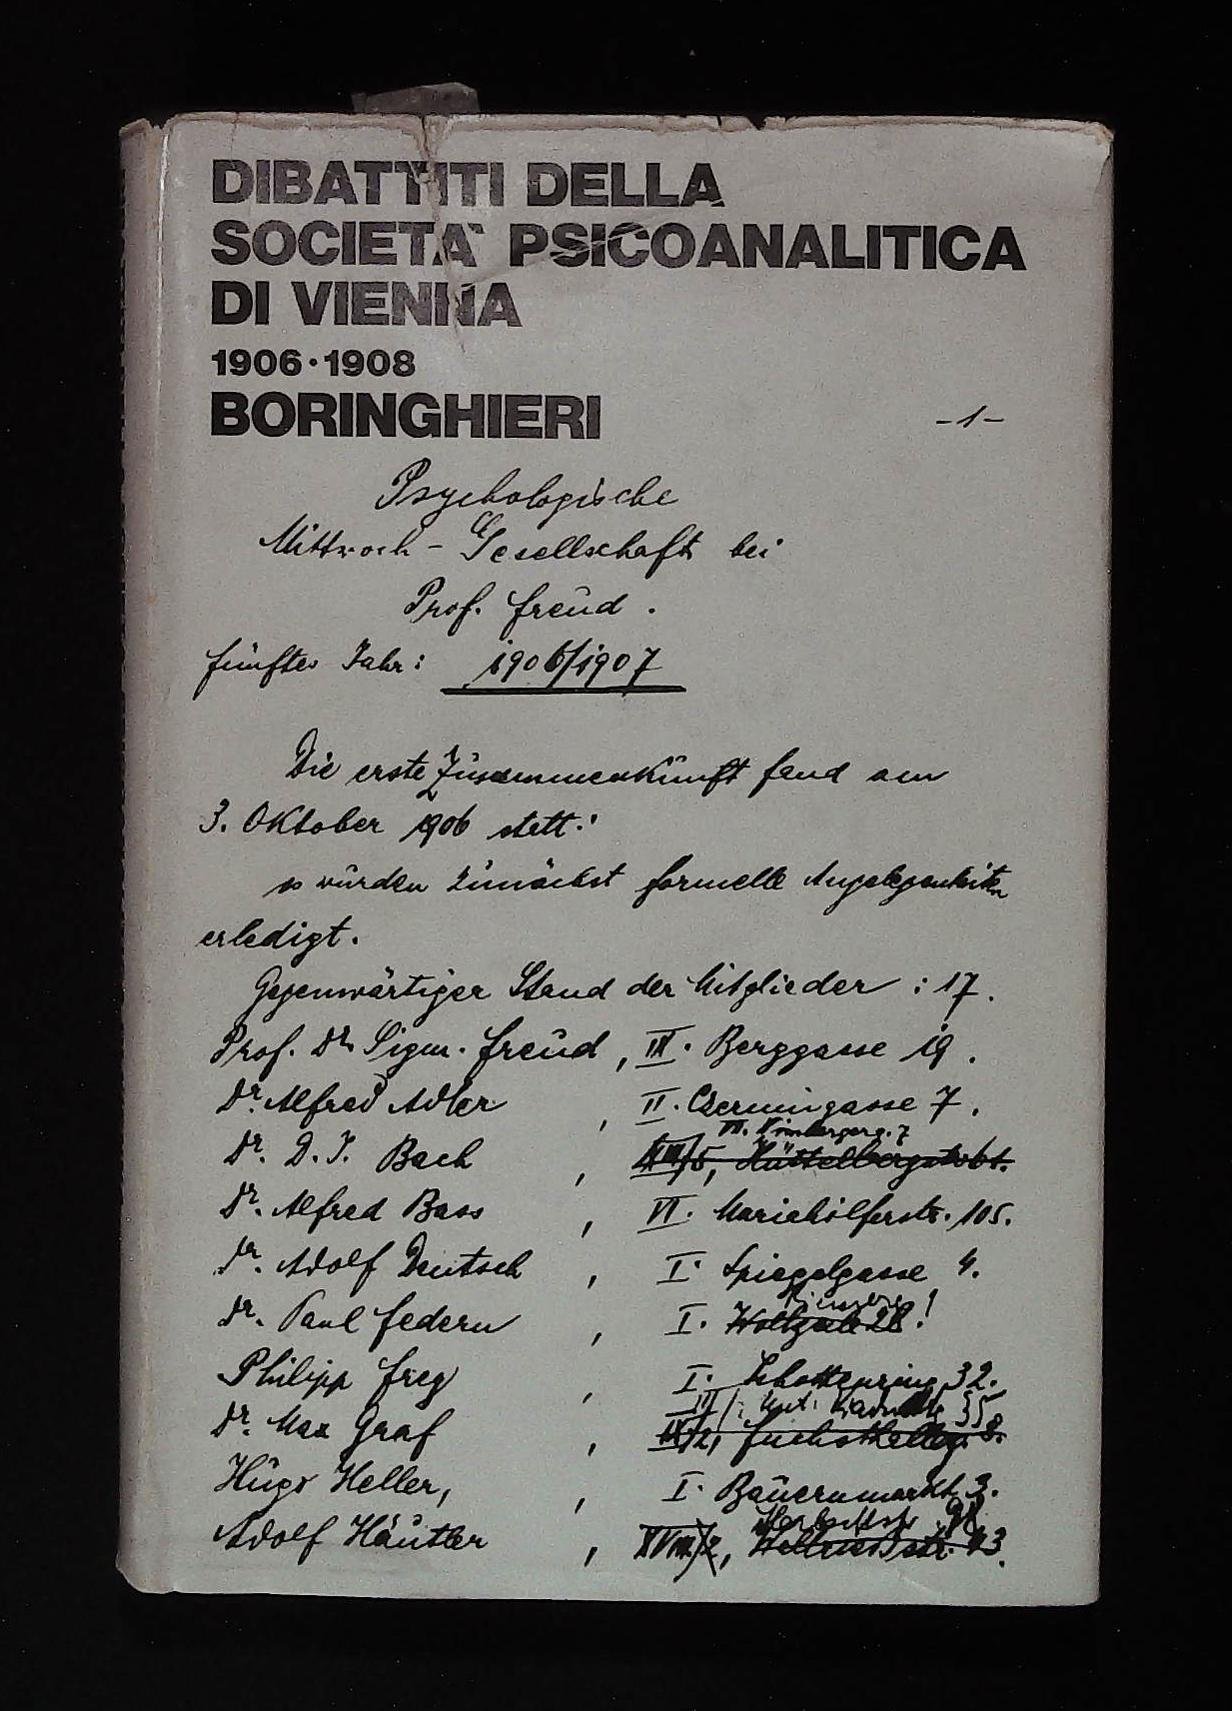 DIBATTITI DELLA
SOCIETA` PSICOANALITICA
DI VIENNA
1906·1908
BORINGHIERI
-1-
Psychologische
Mittwoch-Gesellschaft bei
Prof. Freud.
fünftes Jahr: 1906/1907
Die erste Zusammenkunft fand am
3. Oktober 1906 statt:
es wurden zunächst formelle Angelegenheiten
erledigt.
Gegenwärtiger Stand der Mitglieder: 17.
Prof. Dr. Sigm. Freud, IX. Berggasse 19.
Dr. Alfred Adler, II. Czerningasse 7.
Dr. D. J. Bach, XIII/5, Hüttelbergstr.
Dr. Alfred Bass, VI. Mariahilferstr. 105.
Dr. Adolf Deutsch, I. Spiegelgasse 4.
Dr. Paul Federn, I. Wollzeile 28!
Philipp Frey, I. Schottenring 32.
Dr. Max Graf, Fuchsthallerg. 8.
Hugo Heller, I. Bauernmarkt 3.
Adolf Häutler, XVIII/2, 43.